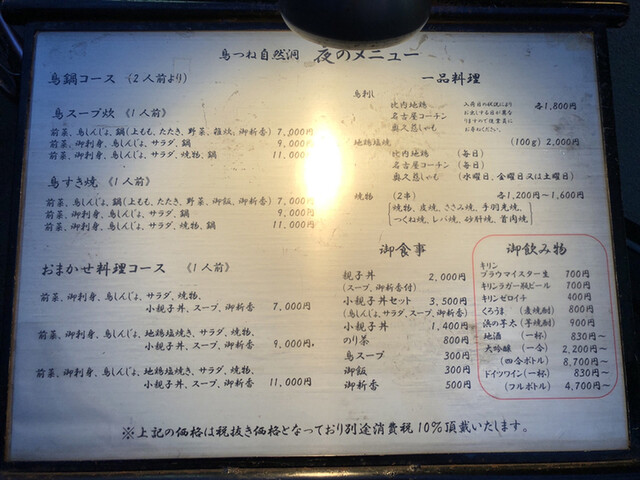 鳥つね自然洞 夜のメニュー
鳥鍋コース (2人前より)
鳥スープ炊 《1人前》
前菜、鳥しんじょ、鍋(上もも、たたき、野菜、雑炊、御新香) 7,000円
前菜、御刺身、鳥しんじょ、サラダ、鍋 9,000円
前菜、御刺身、鳥しんじょ、サラダ、焼物、鍋 11,000円
鳥すき焼 《1人前》
前菜、鳥しんじょ、鍋(上もも、たたき、野菜、御飯、御新香) 7,000円
前菜、御刺身、鳥しんじょ、サラダ、鍋 9,000円
前菜、御刺身、鳥しんじょ、サラダ、焼物、鍋 11,000円
おまかせ料理コース 《1人前》
前菜、御刺身、鳥しんじょ、サラダ、焼物、
小親子丼、スープ、御新香 7,000円
前菜、御刺身、鳥しんじょ、地鶏塩焼き、サラダ、焼物、
小親子丼、スープ、御新香 9,000円
前菜、御刺身、鳥しんじょ、地鶏塩焼き、サラダ、焼物、
小親子丼、スープ、御新香 11,000円
一品料理
鳥刺し
比内地鶏
名古屋コーチン
奥久慈しゃも
入荷日の状況により
お出しする日が異な
りますので従業員に
お尋ねください。
各1,800円
地鶏塩焼 (100g) 2,000円
比内地鶏 (毎日)
名古屋コーチン (毎日)
奥久慈しゃも (水曜日、金曜日又は土曜日)
焼物 (2串) 各1,200円～1,600円
焼物、皮焼、ささみ焼、手羽先焼、
つくね焼、レバ焼、砂肝焼、首肉焼
御食事
親子丼 2,000円
(スープ、御新香付)
小親子丼セット 3,500円
(鳥しんじょ、サラダ、スープ、御新香)
小親子丼 1,400円
のり茶 800円
鳥スープ 300円
御飯 300円
御新香 500円
御飲み物
キリン
ブラウマイスター生 700円
キリンラガー瓶ビール 700円
キリンゼロイチ 400円
くろうま (麦焼酎) 800円
浜の芋太 (芋焼酎) 900円
地酒 (一杯) 830円～
大吟醸 (一合) 2,200円～
(四合ボトル) 8,700円～
ドイツワイン (一杯) 830円～
(フルボトル) 4,700円～
※上記の価格は税抜き価格となっており別途消費税10%頂戴いたします。